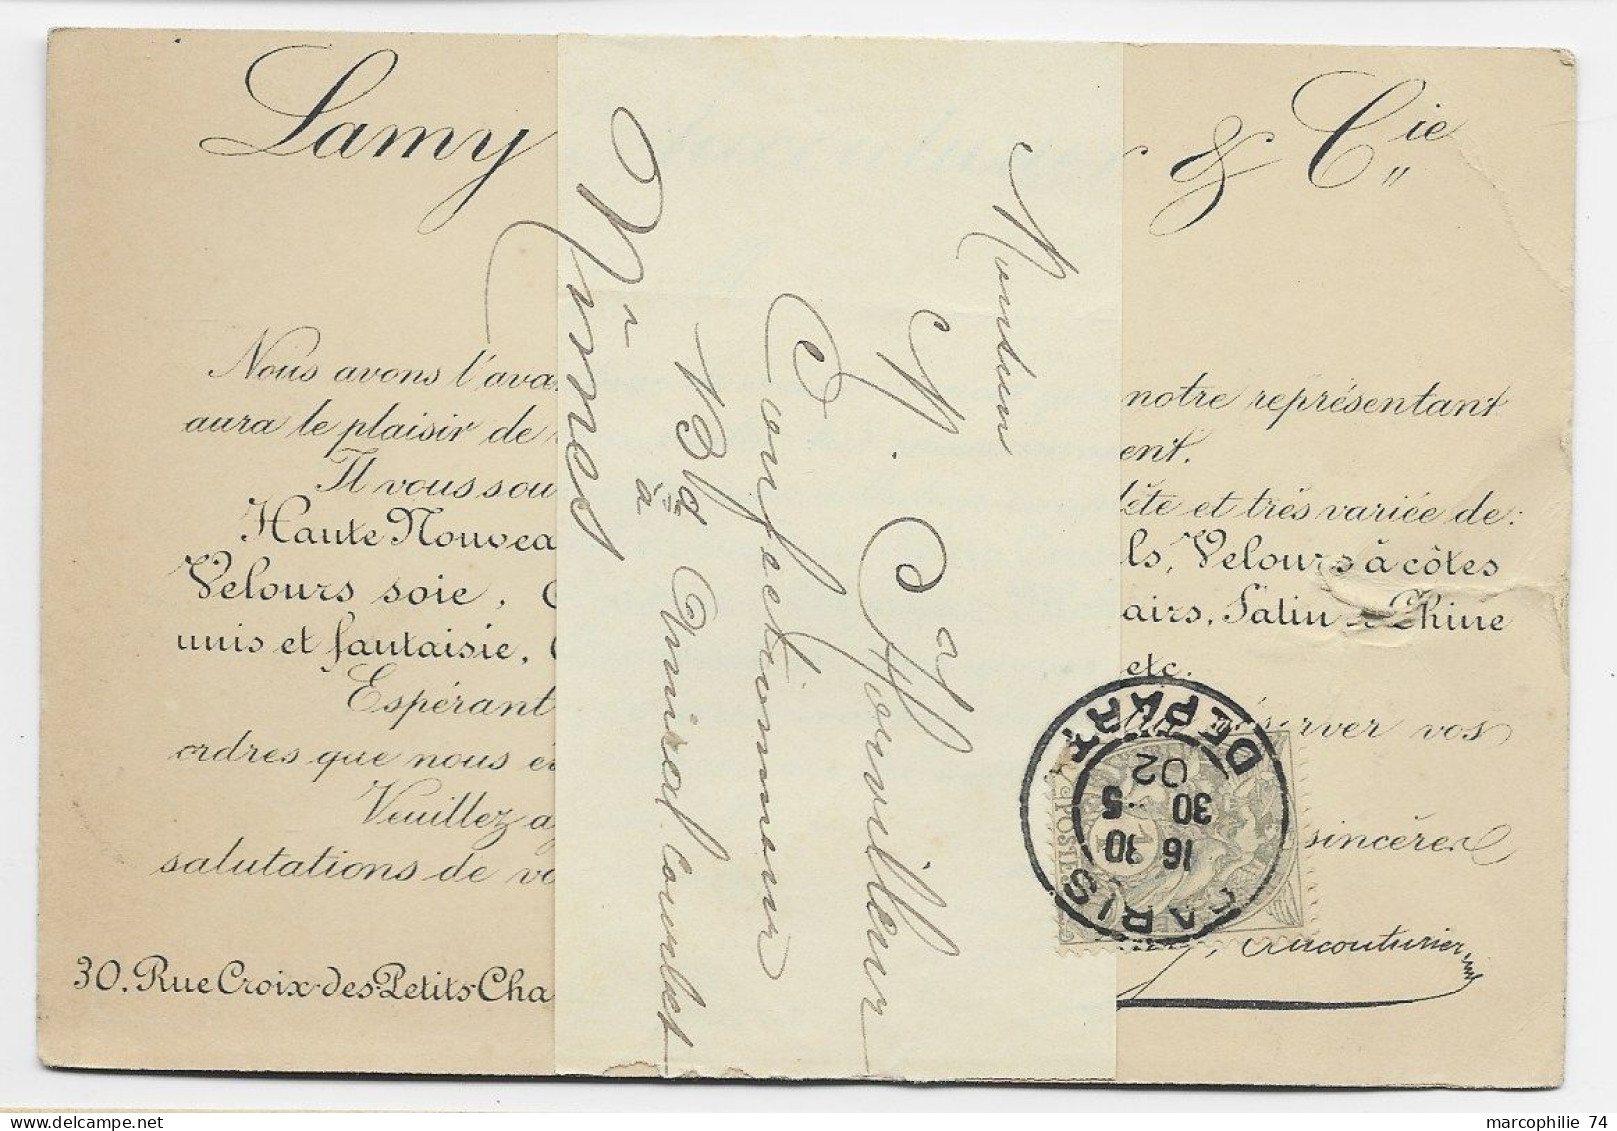 Lamy & Cie
Nous avons l'ava notre représentant
aura le plaisir de ent.
Il vous sou lète et très variée de:
Haute Nouvea ls, Velours à côtes
Velours soie, airs, Satin Chine
unis et fantaisie, etc.
Espérant erver vos
ordres que nous
Veuillez a sincères
salutations de vo
Aucouturier
30, Rue Croix-des-Petits-Cha
Monsieur
M. Cahorvilleur
Confectionneur
13 Bd Amiral Courbet
à
Nimes
PARIS DEPART
16 30
30 -5
02
POSTES
marcophilie 74